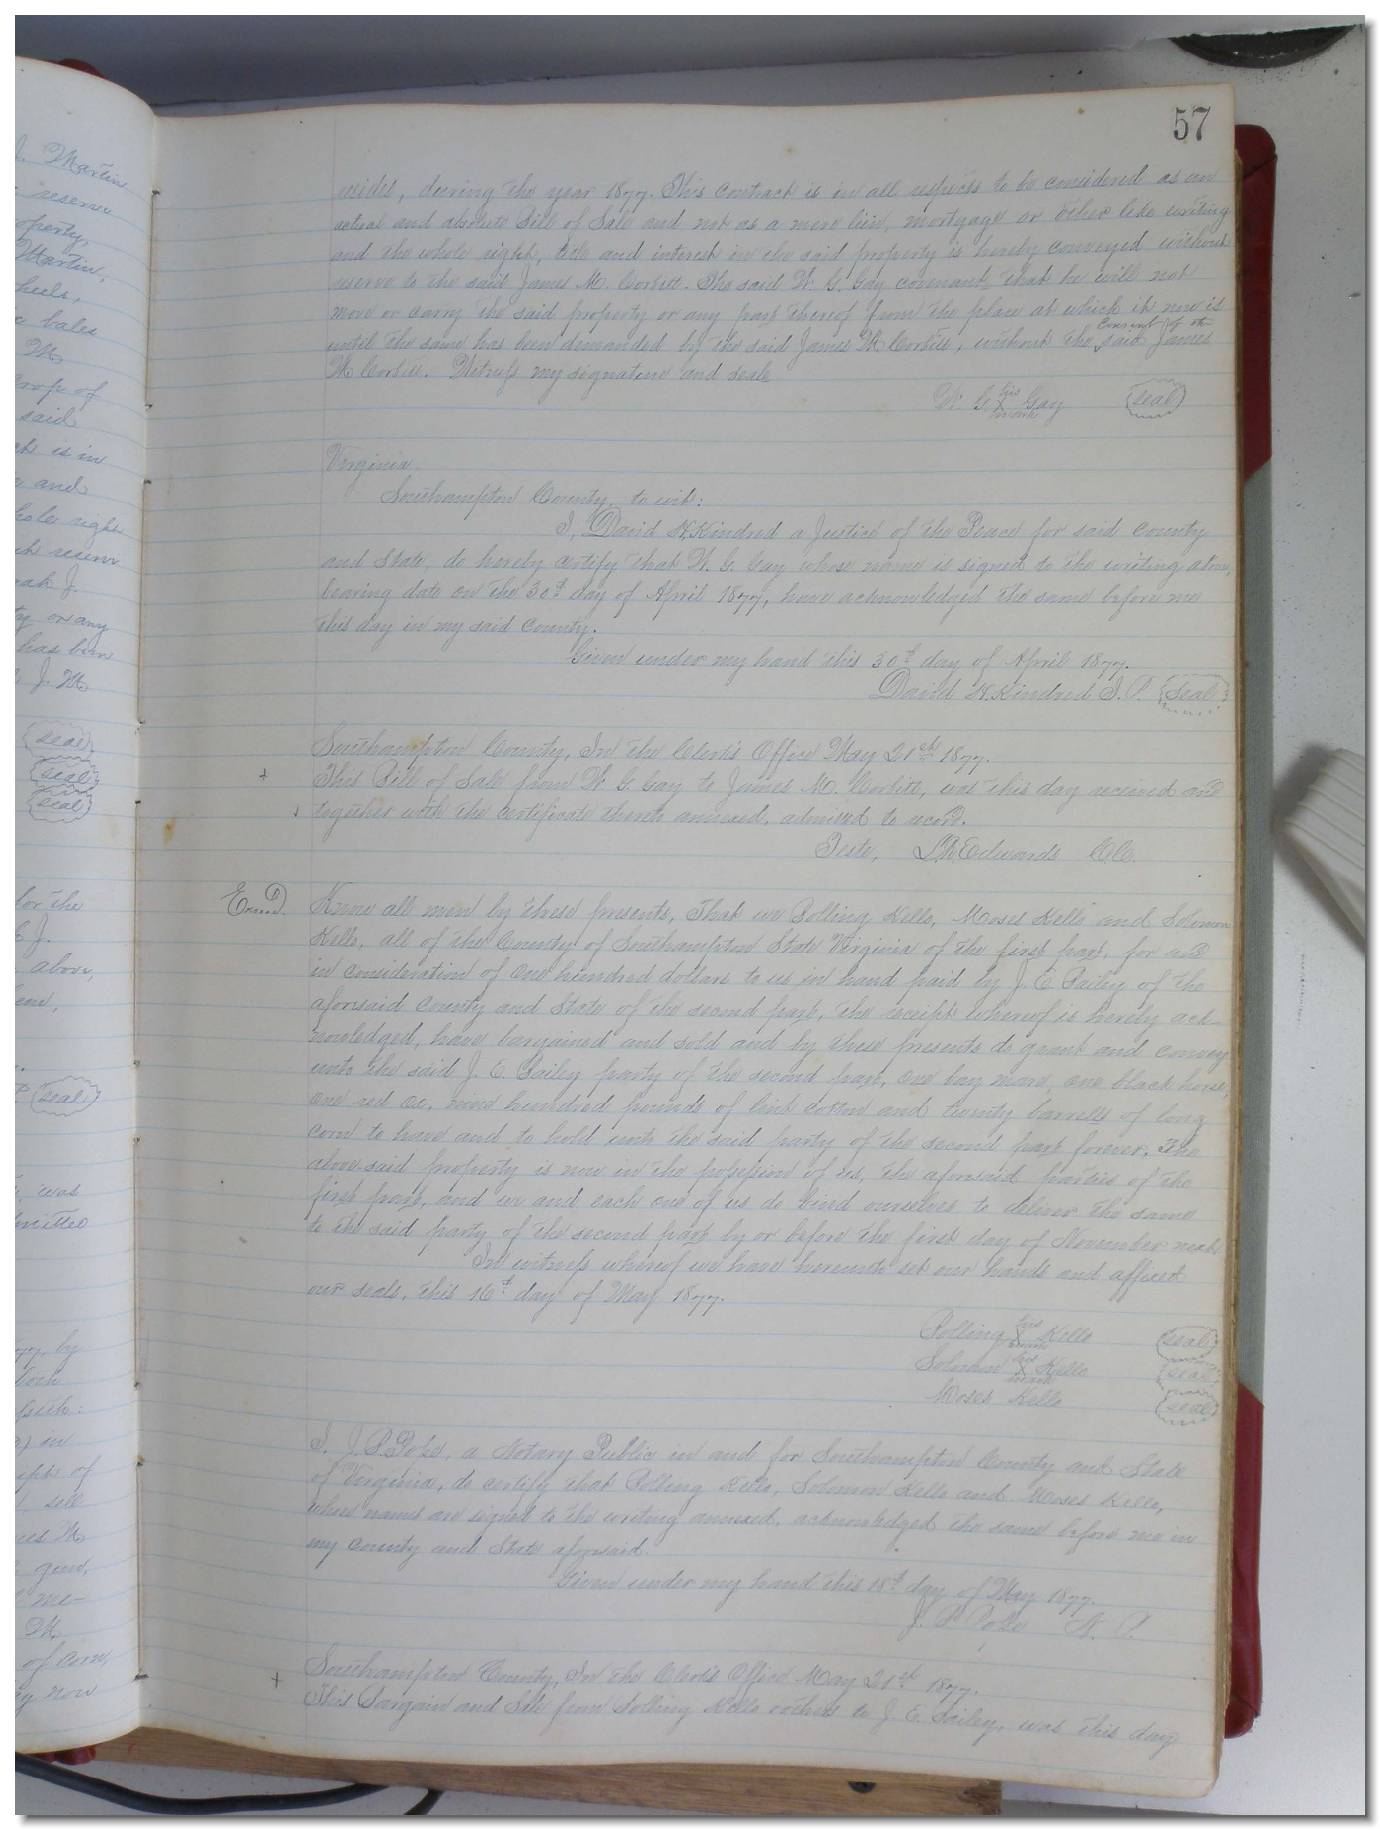 57
J. Martin
reserve
property,
Martin,
wheels,
bales
M
crop of
said
is in
and
whole right
reserve
J.
or any
has been
J. M
(seal)
(seal)
(seal)
for the
& J.
above,
(seal)
was
admitted
by
in
of
sell
James M
M.
of corn,
now
resides, during the year 1877. This contract is in all respects to be considered as an
actual and absolute Bill of Sale and not as a mere lien, mortgage or other like writing
and the whole right, title and interest in the said property is hereby conveyed without
reserve to the said James M. Corbitt. The said W. G. Gay covenants that he will not
move or carry the said property or any part thereof from the place at which it now is
until the same has been demanded by the said James M Corbitt, without the consent of the said James
M Corbitt. Witness my signature and seal.
W. G. his X mark Gay (seal)
Virginia
Southampton County, to wit:
I, David H. Kindred a Justice of the Peace for said County
and State, do hereby certify that W. G. Gay whose name is signed to the writing above,
bearing date on the 30th day of April 1877, have acknowledged the same before me
this day in my said County.
Given under my hand this 30th day of April 1877.
David H. Kindred J. P. (seal)
Southampton County, In the Clerks Office May 21st 1877.
+ This Bill of Sale from W. G. Gay to James M. Corbitt, was this day received and
together with the certificate thereto annexed, admitted to record.
Teste, L. R. Edwards CC.
Exmd. Know all men by these presents, That we Bolling Kello, Moses Kello and Solomon
Kello, all of the County of Southampton State Virginia of the first part, for and
in consideration of One hundred dollars to us in hand paid by J. E. Bailey of the
aforesaid County and State of the second part, the receipt whereof is hereby ack-
nowledged, have bargained and sold and by these presents do grant and convey
unto the said J. E. Bailey party of the second part, one bay mare, one black horse,
one red ox, nine hundred pounds of lint cotton and twenty barrells of long
corn to have and to hold unto the said party of the second part forever. The
above said property is now in the possession of us, the aforesaid parties of the
first part, and we and each one of us do bind ourselves to deliver the same
to the said party of the second part by or before the first day of November next
In witness whereof we have hereunto set our hands and affixed
our seals, this 16th day of May 1877.
Bolling his X mark Kello (seal)
Solomon his X mark Kello (seal)
Moses Kello (seal)
I, J. P. Pope, a Notary Public in and for Southampton County and State
of Virginia, do certify that Bolling Kello, Solomon Kello and Moses Kello,
whose names are signed to the writing annexed, acknowledged the same before me in
my County and State aforesaid.
Given under my hand this 18th day of May 1877.
J. P. Pope N. P.
+ Southampton County, In the Clerks Office May 21st 1877.
This Bargain and Sale from Bolling Kello & others to J. E. Bailey, was this day